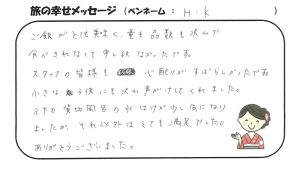 旅の幸せメッセージ (ペンネーム : H.K )
ご飯がとても美味しく、量も品数も沢山で
食べきれなくて申し訳なかったです。
スタッフの皆様も 心配りがすばらしかったです。
小さな子供にも沢山声がけしてくれました。
3Fの貸切風呂の水はけが少し気になり
ましたが、それ以外はとても満足でした。
ありがとうございました。